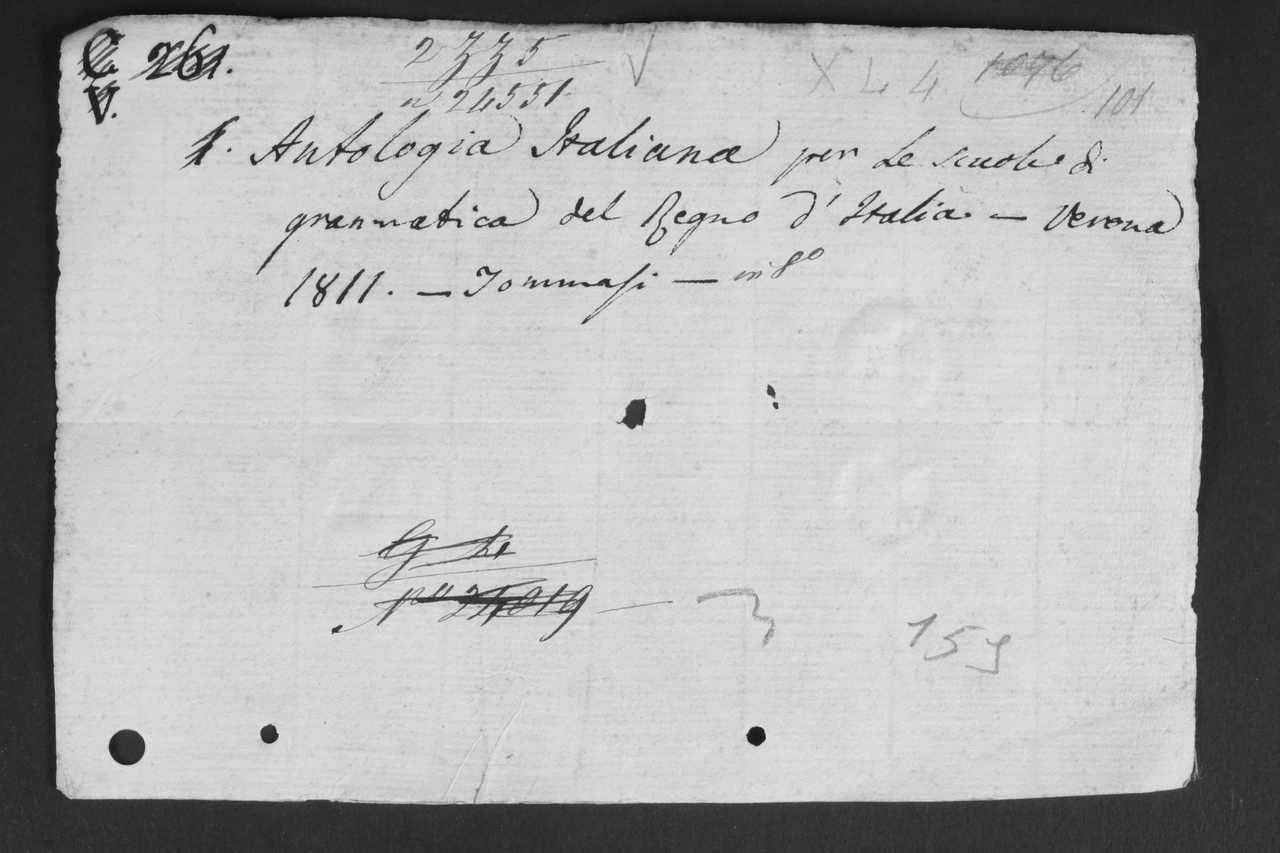 C. 261.
V.
2335
n 24551
XL 4
1076
101
1. Antologia Italiana per le scuole di
grammatica del Regno d'Italia – Verona
1811. – Tommasi – in 8º
Nº 24019
159